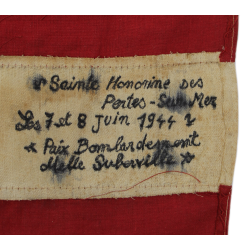 Sainte Honorine des
Pertes-Sur-Mer
Les 7 et 8 Juin 1944
* Paix Bombardement
Melle Suberville *